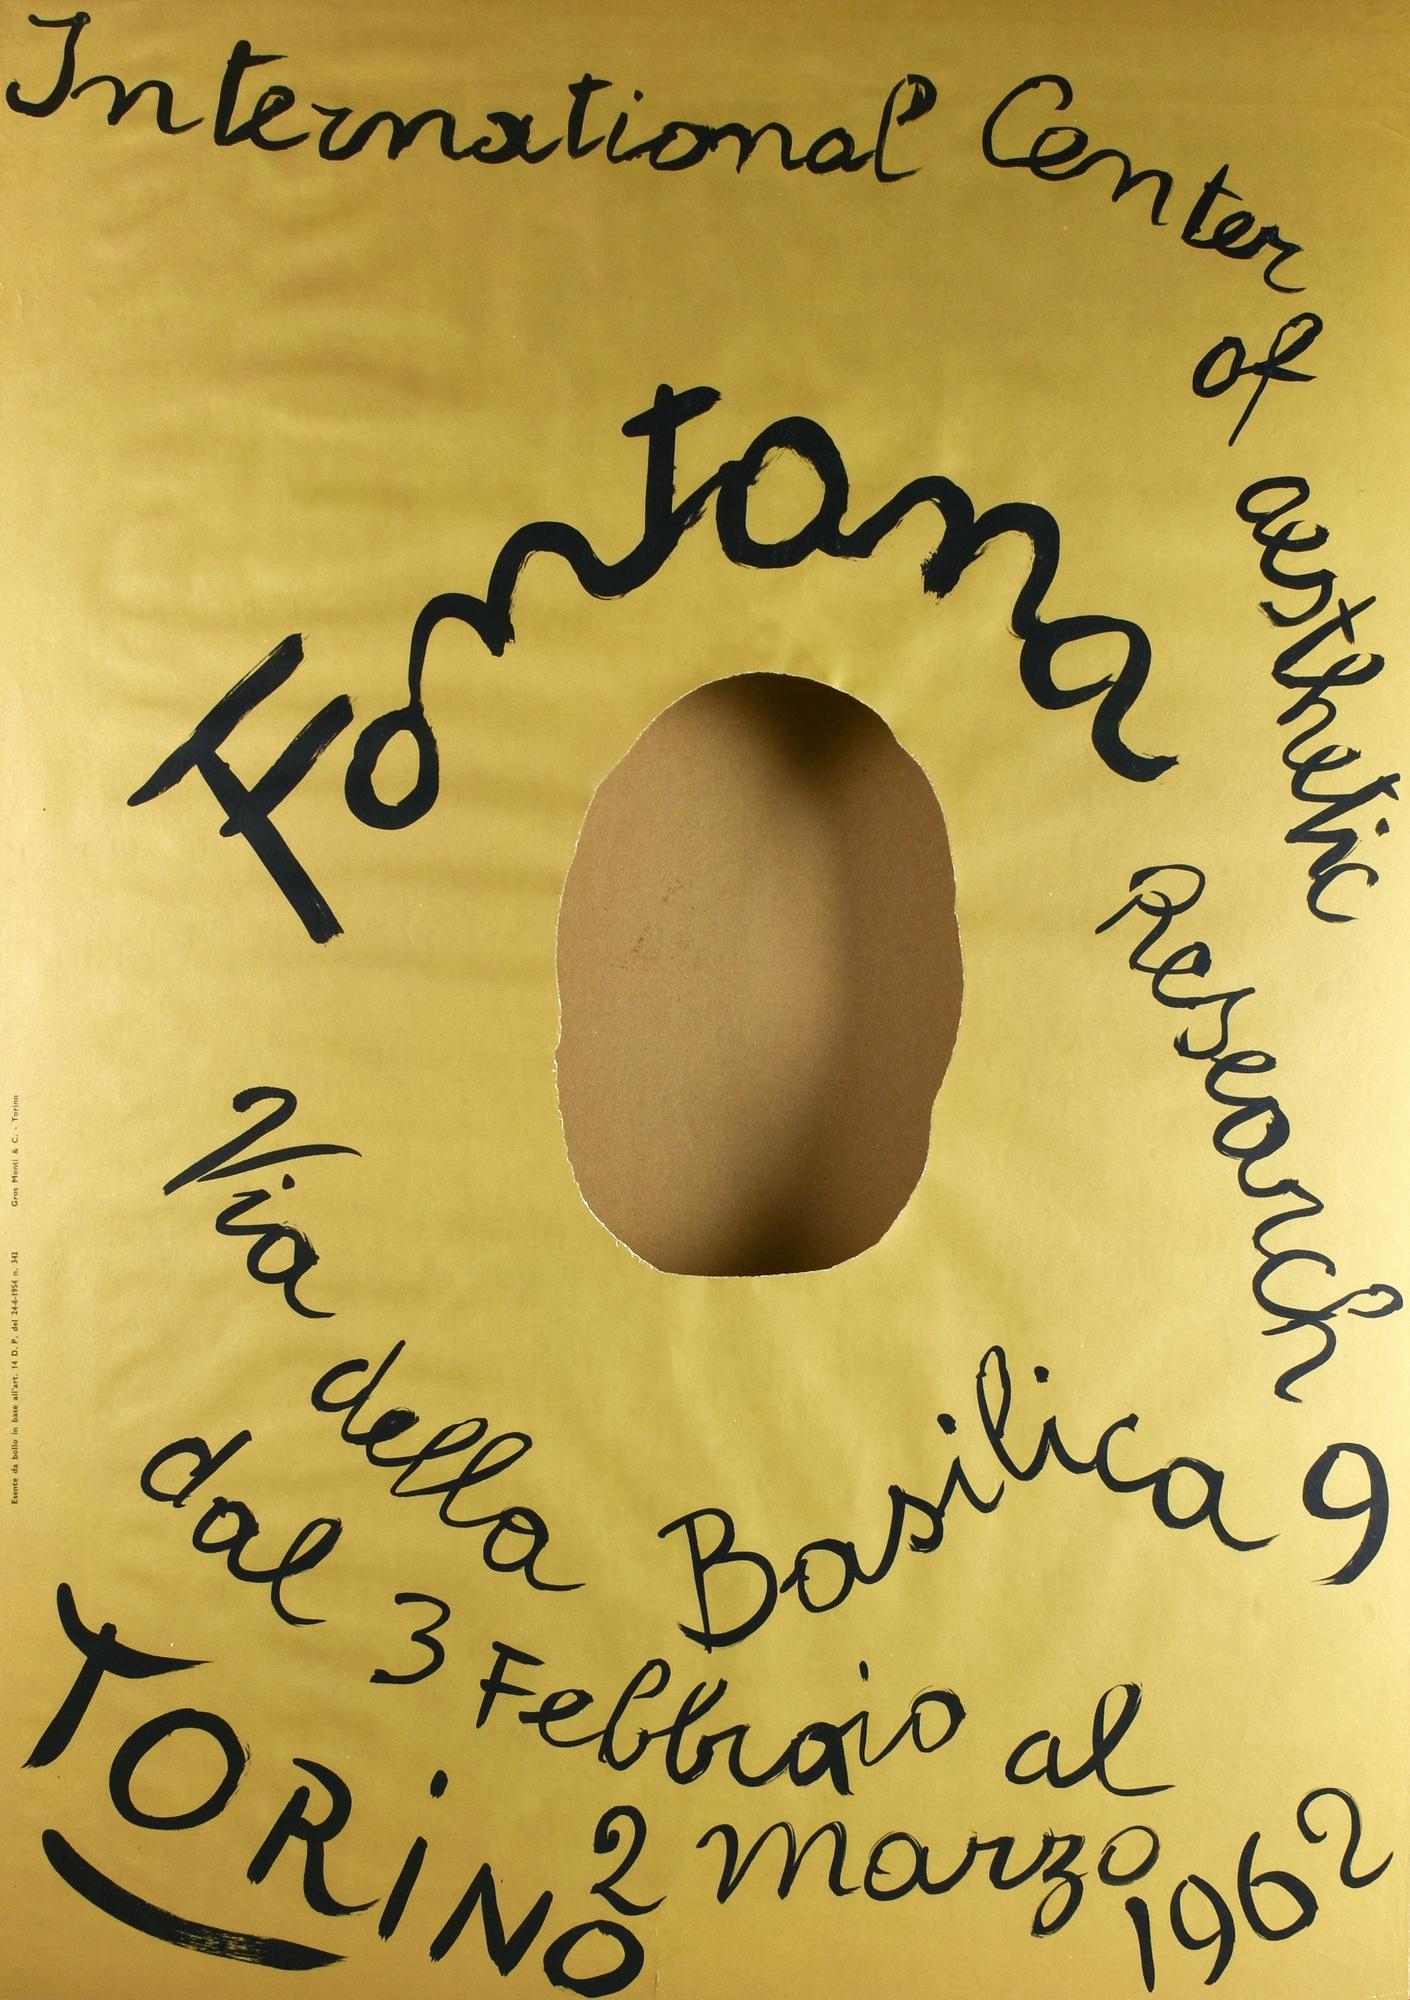 International Center
of aesthetic
Research
Fontana
Via della Basilica 9
dal 3 Febbraio al
2 marzo 1962
TORiNO
Esente da bollo in base all'art. 14 D. P. del 24-6-1954 n. 342 Gros Monti & C. - Torino